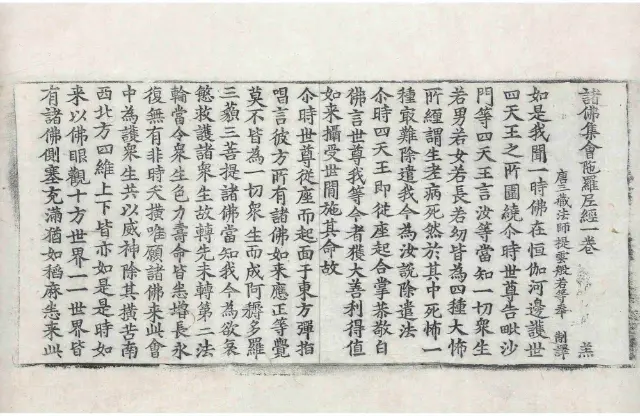 諸佛集會陁羅尼經一卷 羔
唐三藏法師提雲般若等奉 制譯
如是我聞一時佛在恒伽河邊護世
四天王之所圍繞尒時世尊告毗沙
門等四天王言汝等當知一切衆生
若男若女若長若幼皆為四種大怖
所經謂生老病死然於其中死怖一
種㝡難除遣我今為汝說除遣法
尒時四天王即從座起合掌恭敬白
佛言世尊我等今者獲大善利得值
如来攝受世間施其命故
尒時世尊從座而起面于東方彈指
唱言彼方所有諸佛如来應正等覺
莫不皆為一切衆生而成阿耨多羅
三藐三菩提諸佛當知我今為欲哀
愍救護諸衆生故轉先未轉第二法
輪當令衆生色力壽命皆悉增長永
復無有非時夭撗唯願諸佛来此會
中為護衆生共以威神除其撗苦南
西北方四維上下皆亦如是是時如
来以佛眼觀十方世界一一世界皆
有諸佛側塞充滿猶如稻麻悉来此